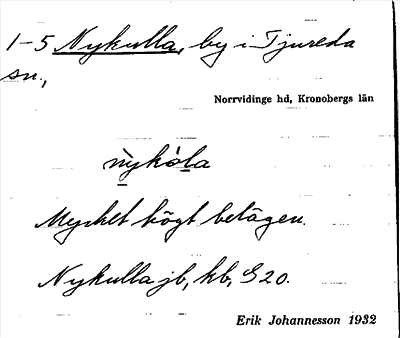 1-5 Nykulla, by i Tjureda
sn.,
Norrvidinge hd, Kronobergs län
nỳkọ́la
Mycket högt belägen.
Nykulla jb, kb, G 20.
Erik Johannesson 1932